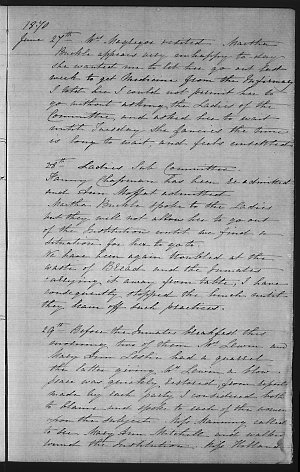 1870
June 27th Mrs Macgregor visited Martha
Buckle appears very unhappy to day
she wanted me to let her go out last
week to get Medicine from the Infirmary
I told her I could not permit her to
go without asking the Ladies of the
Committee, and asked her to wait
until Tuesday She fancies the time
is long to wait and feels unsettled
28th Ladies Sub Committee
Fanny Chapman has been re-admitted
and Ann Moffat admitted
Martha Buckle spoke to the Ladies
but they will not allow her to go out
of the Institution until we find a
situation for her to go to
We have been again troubled at the
waste of Bread and the inmates
carrying it away from table, I have
consequently stopped the lunch until
they leave off such practices.
29th Before the Inmates breakfasted this
morning two of them Mrs Lewin and
Mary Ann had a quarrel
the latter giving Mrs Lewin a blow
peace was quickly restored from reports
made by each party I considered both
to blame and spoke to each of the women
upon the subject. Miss Manning called
to see Mary Ann Mitchell and walked
round the Institution. Miss Holland